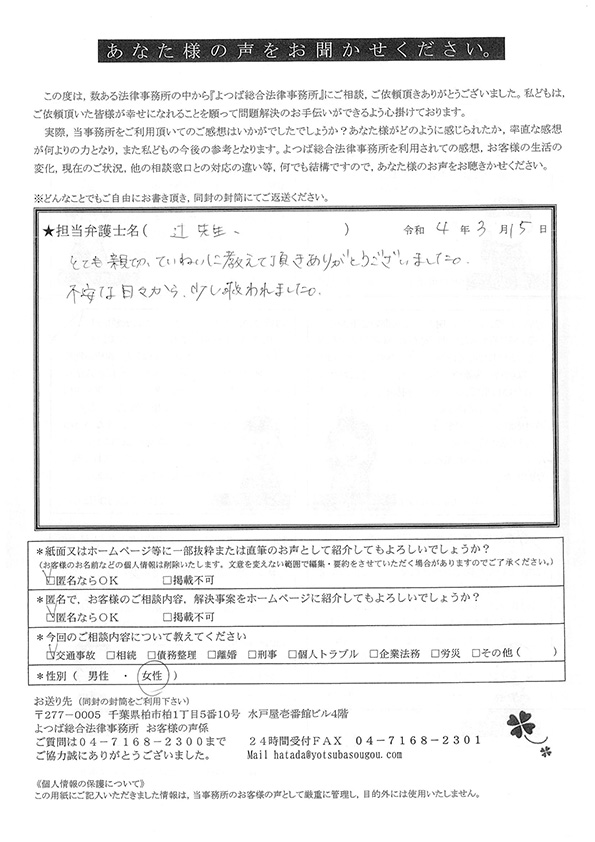 あなた様の声をお聞かせください。
この度は，数ある法律事務所の中から『よつば総合法律事務所』にご相談，ご依頼頂きありがとうございました。私どもは，
ご依頼頂いた皆様が幸せになれることを願って問題解決のお手伝いができるよう心掛けております。
実際，当事務所をご利用頂いてのご感想はいかがでしたでしょうか？あなた様がどのように感じられたか，率直な感想
が何よりの力となり，また私どもの今後の参考となります。よつば総合法律事務所を利用されての感想，お客様の生活の
変化，現在のご状況，他の相談窓口との対応の違い等，何でも結構ですので，あなた様のお声をお聴きかせください。
※どんなことでもご自由にお書き頂き，同封の封筒にてご返送ください。
★担当弁護士名（ 辻 先生 ） 令和 4 年 3 月 15 日
とても親切、ていねいに教えて頂きありがとうございました。
不安な日々から、少し救われました。
＊紙面又はホームページ等に一部抜粋または直筆のお声として紹介してもよろしいでしょうか？
（お客様のお名前などの個人情報は削除いたします。文意を変えない範囲で編集・要約をさせていただく場合がありますのでご了承ください。）
☑匿名ならOK □掲載不可
＊匿名で，お客様のご相談内容，解決事案をホームページに紹介してもよろしいでしょうか？
☑匿名ならOK □掲載不可
＊今回のご相談内容について教えてください
☑交通事故 □相続 □債務整理 □離婚 □刑事 □個人トラブル □企業法務 □労災 □その他（ ）
＊性別（ 男性 ・ 女性 ）
お送り先（同封の封筒をご利用下さい）
〒277－0005 千葉県柏市柏1丁目5番10号 水戸屋壱番館ビル4階
よつば総合法律事務所 お客様の声係
ご質問は04－7168－2300まで 24時間受付FAX 04－7168－2301
ご協力誠にありがとうございました。 Mail hatada@yotsubasougou.com
《個人情報の保護について》
この用紙にご記入いただきました情報は，当事務所のお客様の声として厳重に管理し，目的外には使用いたしません。